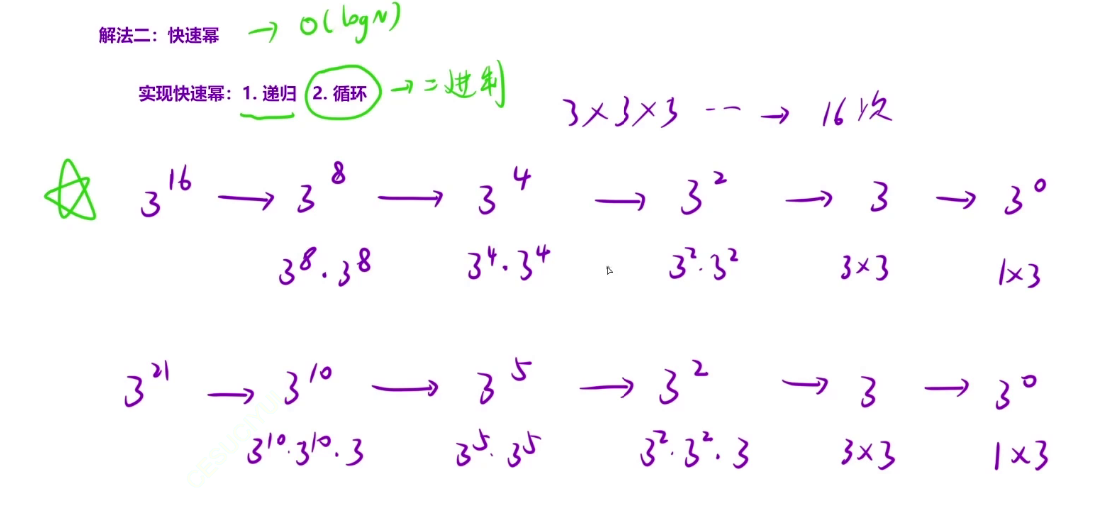 解法二：快速幂 → O(logN)
实现快速幂：1. 递归 2. 循环 → 二进制
3×3×3 -- → 16次
3^16 → 3^8 → 3^4 → 3^2 → 3 → 3^0
3^8·3^8 3^4·3^4 3^2·3^2 3×3 1×3
3^21 → 3^10 → 3^5 → 3^2 → 3 → 3^0
3^10·3^10·3 3^5·3^5 3^2·3^2·3 3×3 1×3